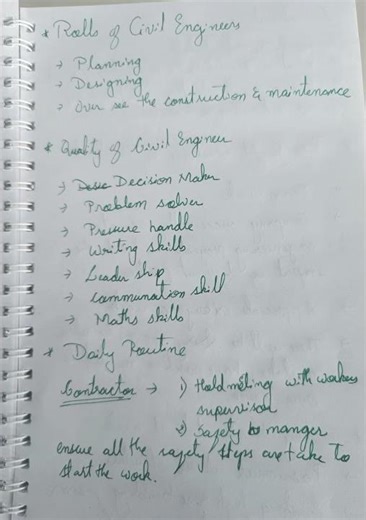 * Rolls of Civil Engineers
→ Planning
→ Designing
→ Over see the construction & maintenance
* Quality of Civil Engineer
→ Desic Decision Maker
→ Problem solver
→ Pressure handle
→ Writing skills
→ Leader ship
→ Communation skill
→ Maths skills
* Daily Routine
Contractor → 1) Hold meting with workers
supervisor
2) Safety to manger
ensure all the safety steps are take to
start the work.